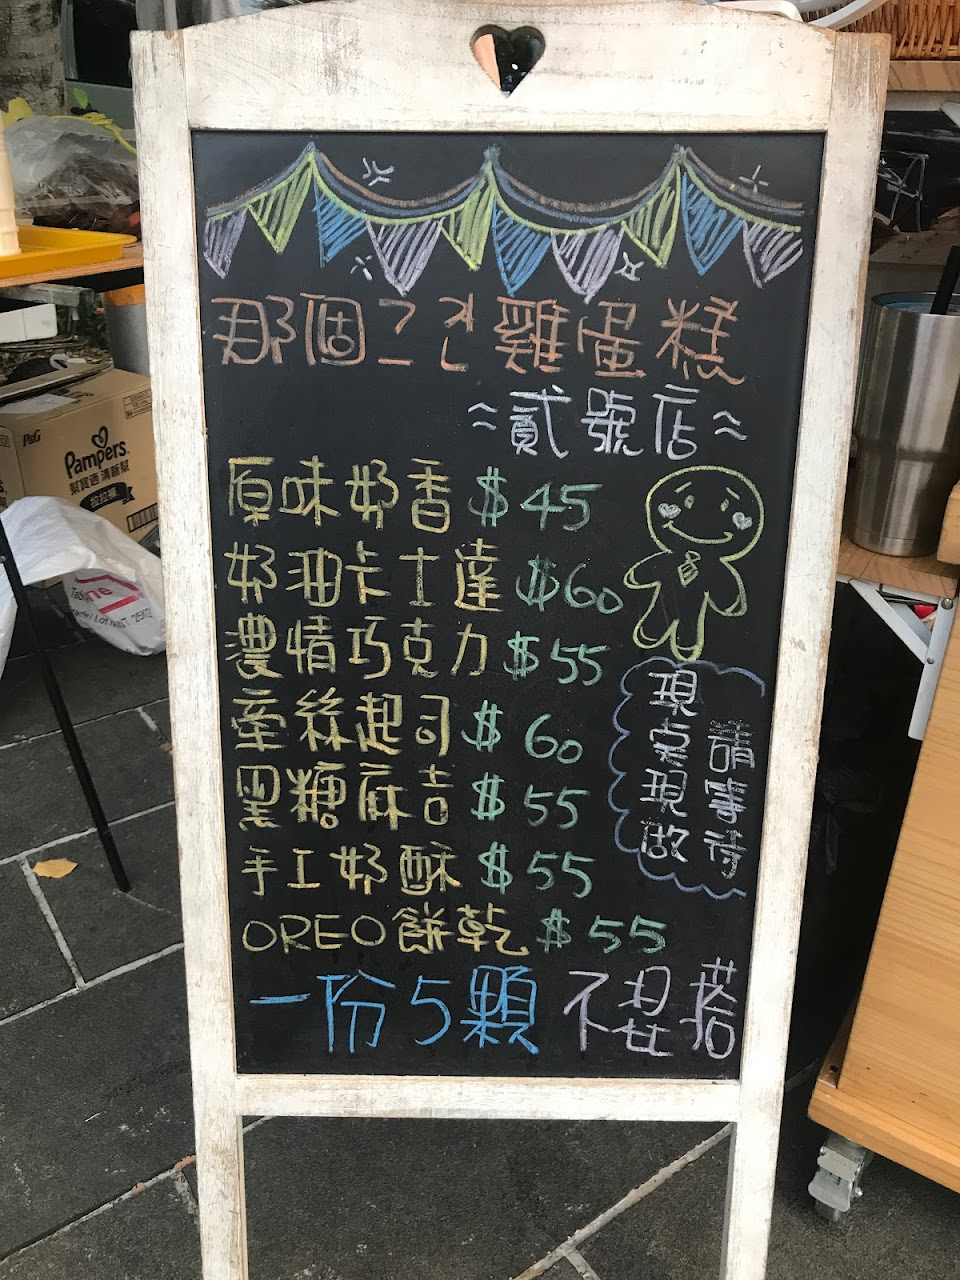 那個 雞蛋糕
≈貳號店≈
原味奶香 $45
奶油卡士達 $60
濃情巧克力 $55
牽絲起司 $60
黑糖麻吉 $55
手工奶酥 $55
OREO餅乾 $55
現点現做
請等待
一份5顆 不昆搭
P&G
Pampers
幫寶適 清新幫
拉拉褲